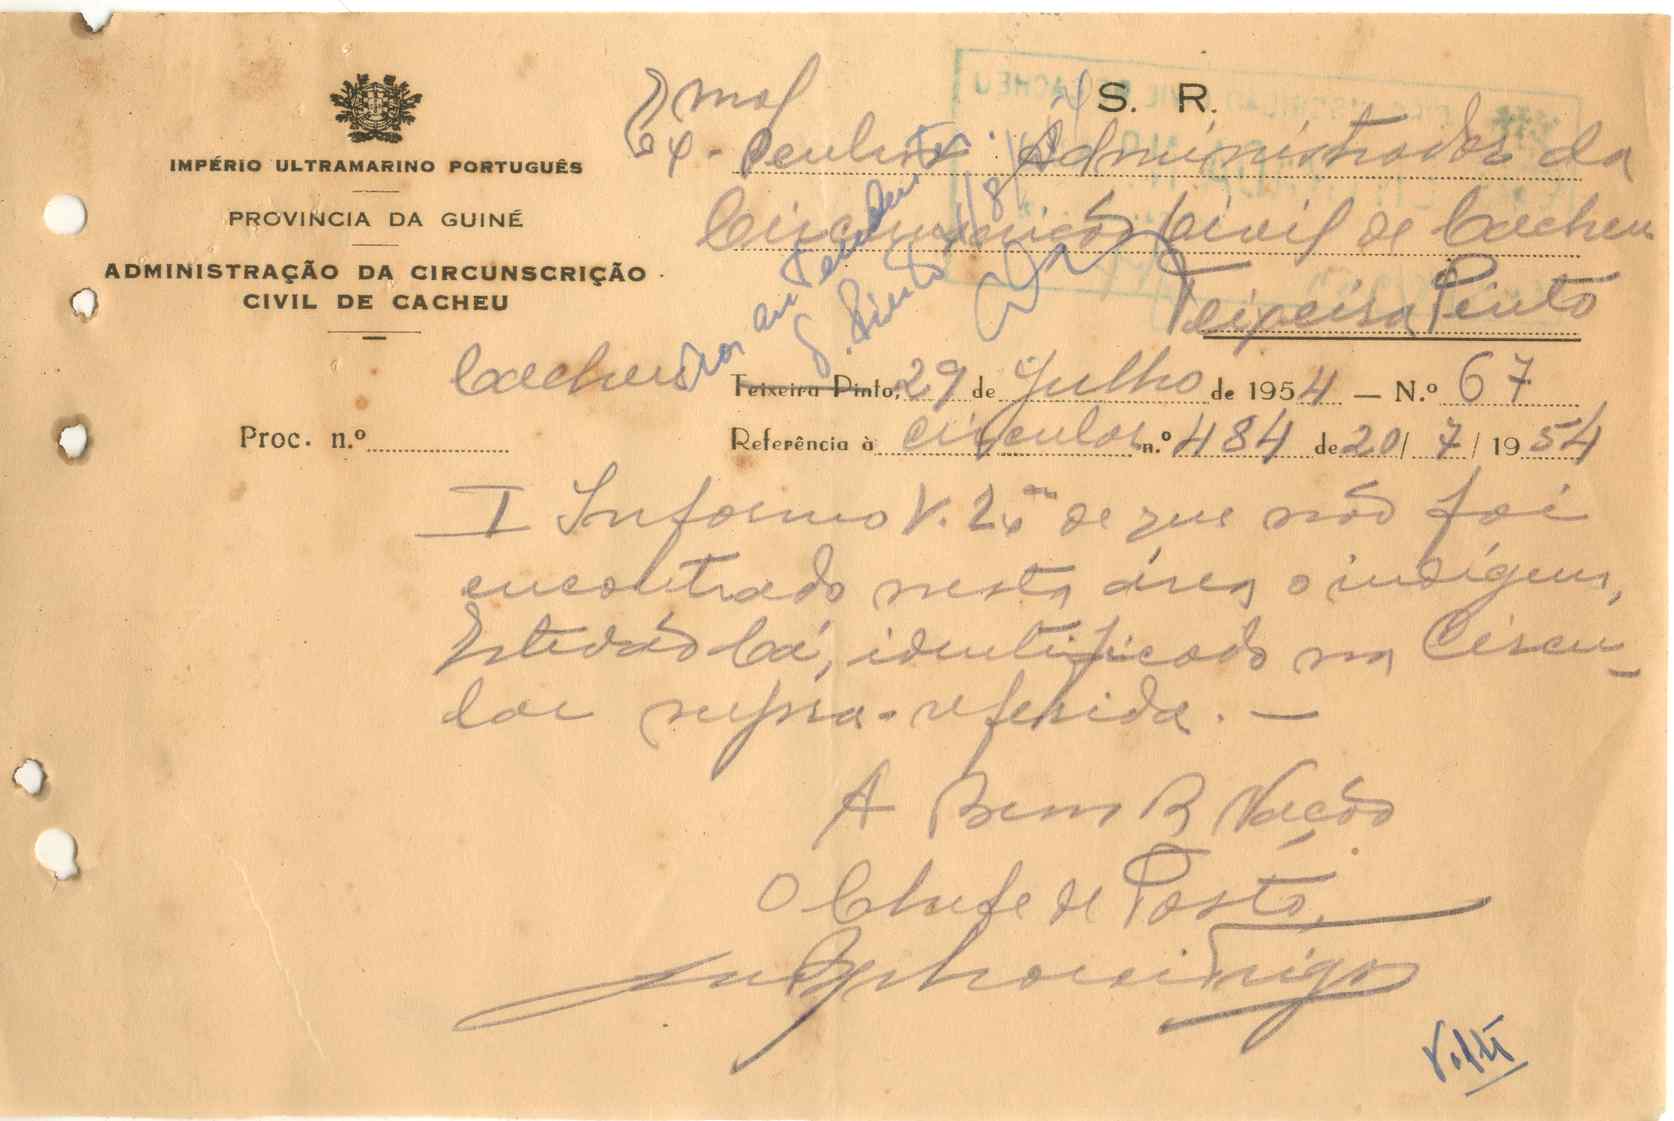 S. R.
IMPÉRIO ULTRAMARINO PORTUGUÊS
PROVINCIA DA GUINÉ
ADMINISTRAÇÃO DA CIRCUNSCRIÇÃO
CIVIL DE CACHEU
Exmo
Senhor Administrador da
Circunscrição Civil de Cacheu
Teixeira Pinto
Cacheu Teixeira Pinto, 29 de Julho de 1954 — N.º 67
Proc. n.º
Referência à circular n.º 484 de 20/ 7 / 1954
I Informo V. Exª de que não foi
encontrado nesta área o indígena,
Estevão Cá, identificado na Circu-
lar supra-referida. —
A Bem da Nação
O Chefe de Posto,
Volte